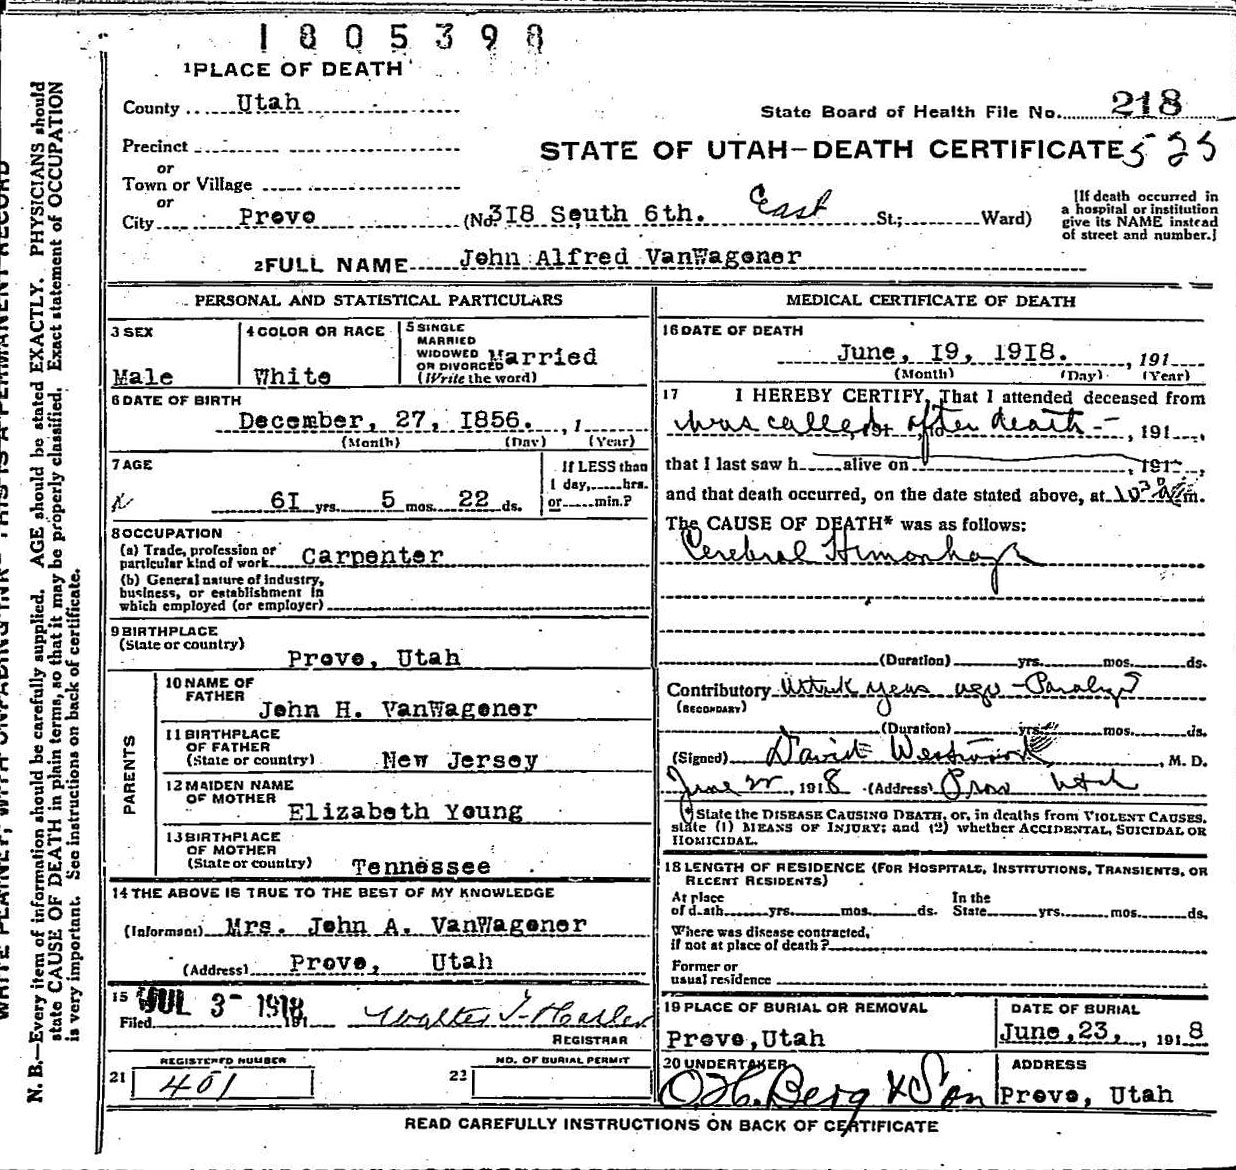 1805398
1 PLACE OF DEATH
County Utah
State Board of Health File No. 218
Precinct
STATE OF UTAH—DEATH CERTIFICATE 525
or
Town or Village
or
City Provo (No. 318 South 6th. East St.; Ward)
[If death occurred in
a hospital or institution
give its NAME instead
of street and number.]
2 FULL NAME John Alfred VanWagoner
PERSONAL AND STATISTICAL PARTICULARS
3 SEX
Male
4 COLOR OR RACE
White
5 SINGLE
MARRIED
WIDOWED
OR DIVORCED
(Write the word)
Married
6 DATE OF BIRTH
December, 27, 1856. , 1
(Month) (Day) (Year)
7 AGE
61 yrs. 5 mos. 22 ds.
If LESS than
1 day, hrs.
or min.?
8 OCCUPATION
(a) Trade, profession or
particular kind of work Carpenter
(b) General nature of industry,
business, or establishment in
which employed (or employer)
9 BIRTHPLACE
(State or country)
Provo, Utah
PARENTS
10 NAME OF
FATHER
John H. VanWagoner
11 BIRTHPLACE
OF FATHER
(State or country) New Jersey
12 MAIDEN NAME
OF MOTHER
Elizabeth Young
13 BIRTHPLACE
OF MOTHER
(State or country) Tennessee
14 THE ABOVE IS TRUE TO THE BEST OF MY KNOWLEDGE
(Informant) Mrs. John A. VanWagoner
(Address) Provo, Utah
15
Filed JUL 3- 1918 191
REGISTRAR
REGISTERED NUMBER
21 401
NO. OF BURIAL PERMIT
22
MEDICAL CERTIFICATE OF DEATH
16 DATE OF DEATH
June, 19, 1918. , 191
(Month) (Day) (Year)
17 I HEREBY CERTIFY, That I attended deceased from
was called after death - , 191 ,
that I last saw h alive on , 191 ,
and that death occurred, on the date stated above, at 10 30 m.
The CAUSE OF DEATH* was as follows:
Cerebral Hemorrhage
(Duration) yrs. mos. ds.
Contributory years ago - Paralysis
(SECONDARY)
(Duration) yrs. mos. ds.
(Signed) David Westwood, M. D.
June 22, 1918 (Address) Provo Utah
*State the DISEASE CAUSING DEATH, or, in deaths from VIOLENT CAUSES,
state (1) MEANS OF INJURY; and (2) whether ACCIDENTAL, SUICIDAL OR
HOMICIDAL.
18 LENGTH OF RESIDENCE (FOR HOSPITALS, INSTITUTIONS, TRANSIENTS, OR
RECENT RESIDENTS)
At place In the
of death yrs. mos. ds. State yrs. mos. ds.
Where was disease contracted,
if not at place of death?
Former or
usual residence
19 PLACE OF BURIAL OR REMOVAL
Provo, Utah
DATE OF BURIAL
June, 23, , 1918
20 UNDERTAKER
O. H. Berg & Son
ADDRESS
Provo, Utah
READ CAREFULLY INSTRUCTIONS ON BACK OF CERTIFICATE
N. B.—Every item of information should be carefully supplied. AGE should be stated EXACTLY. PHYSICIANS should
state CAUSE OF DEATH in plain terms, so that it may be properly classified. Exact statement of OCCUPATION
is very important. See instructions on back of certificate.